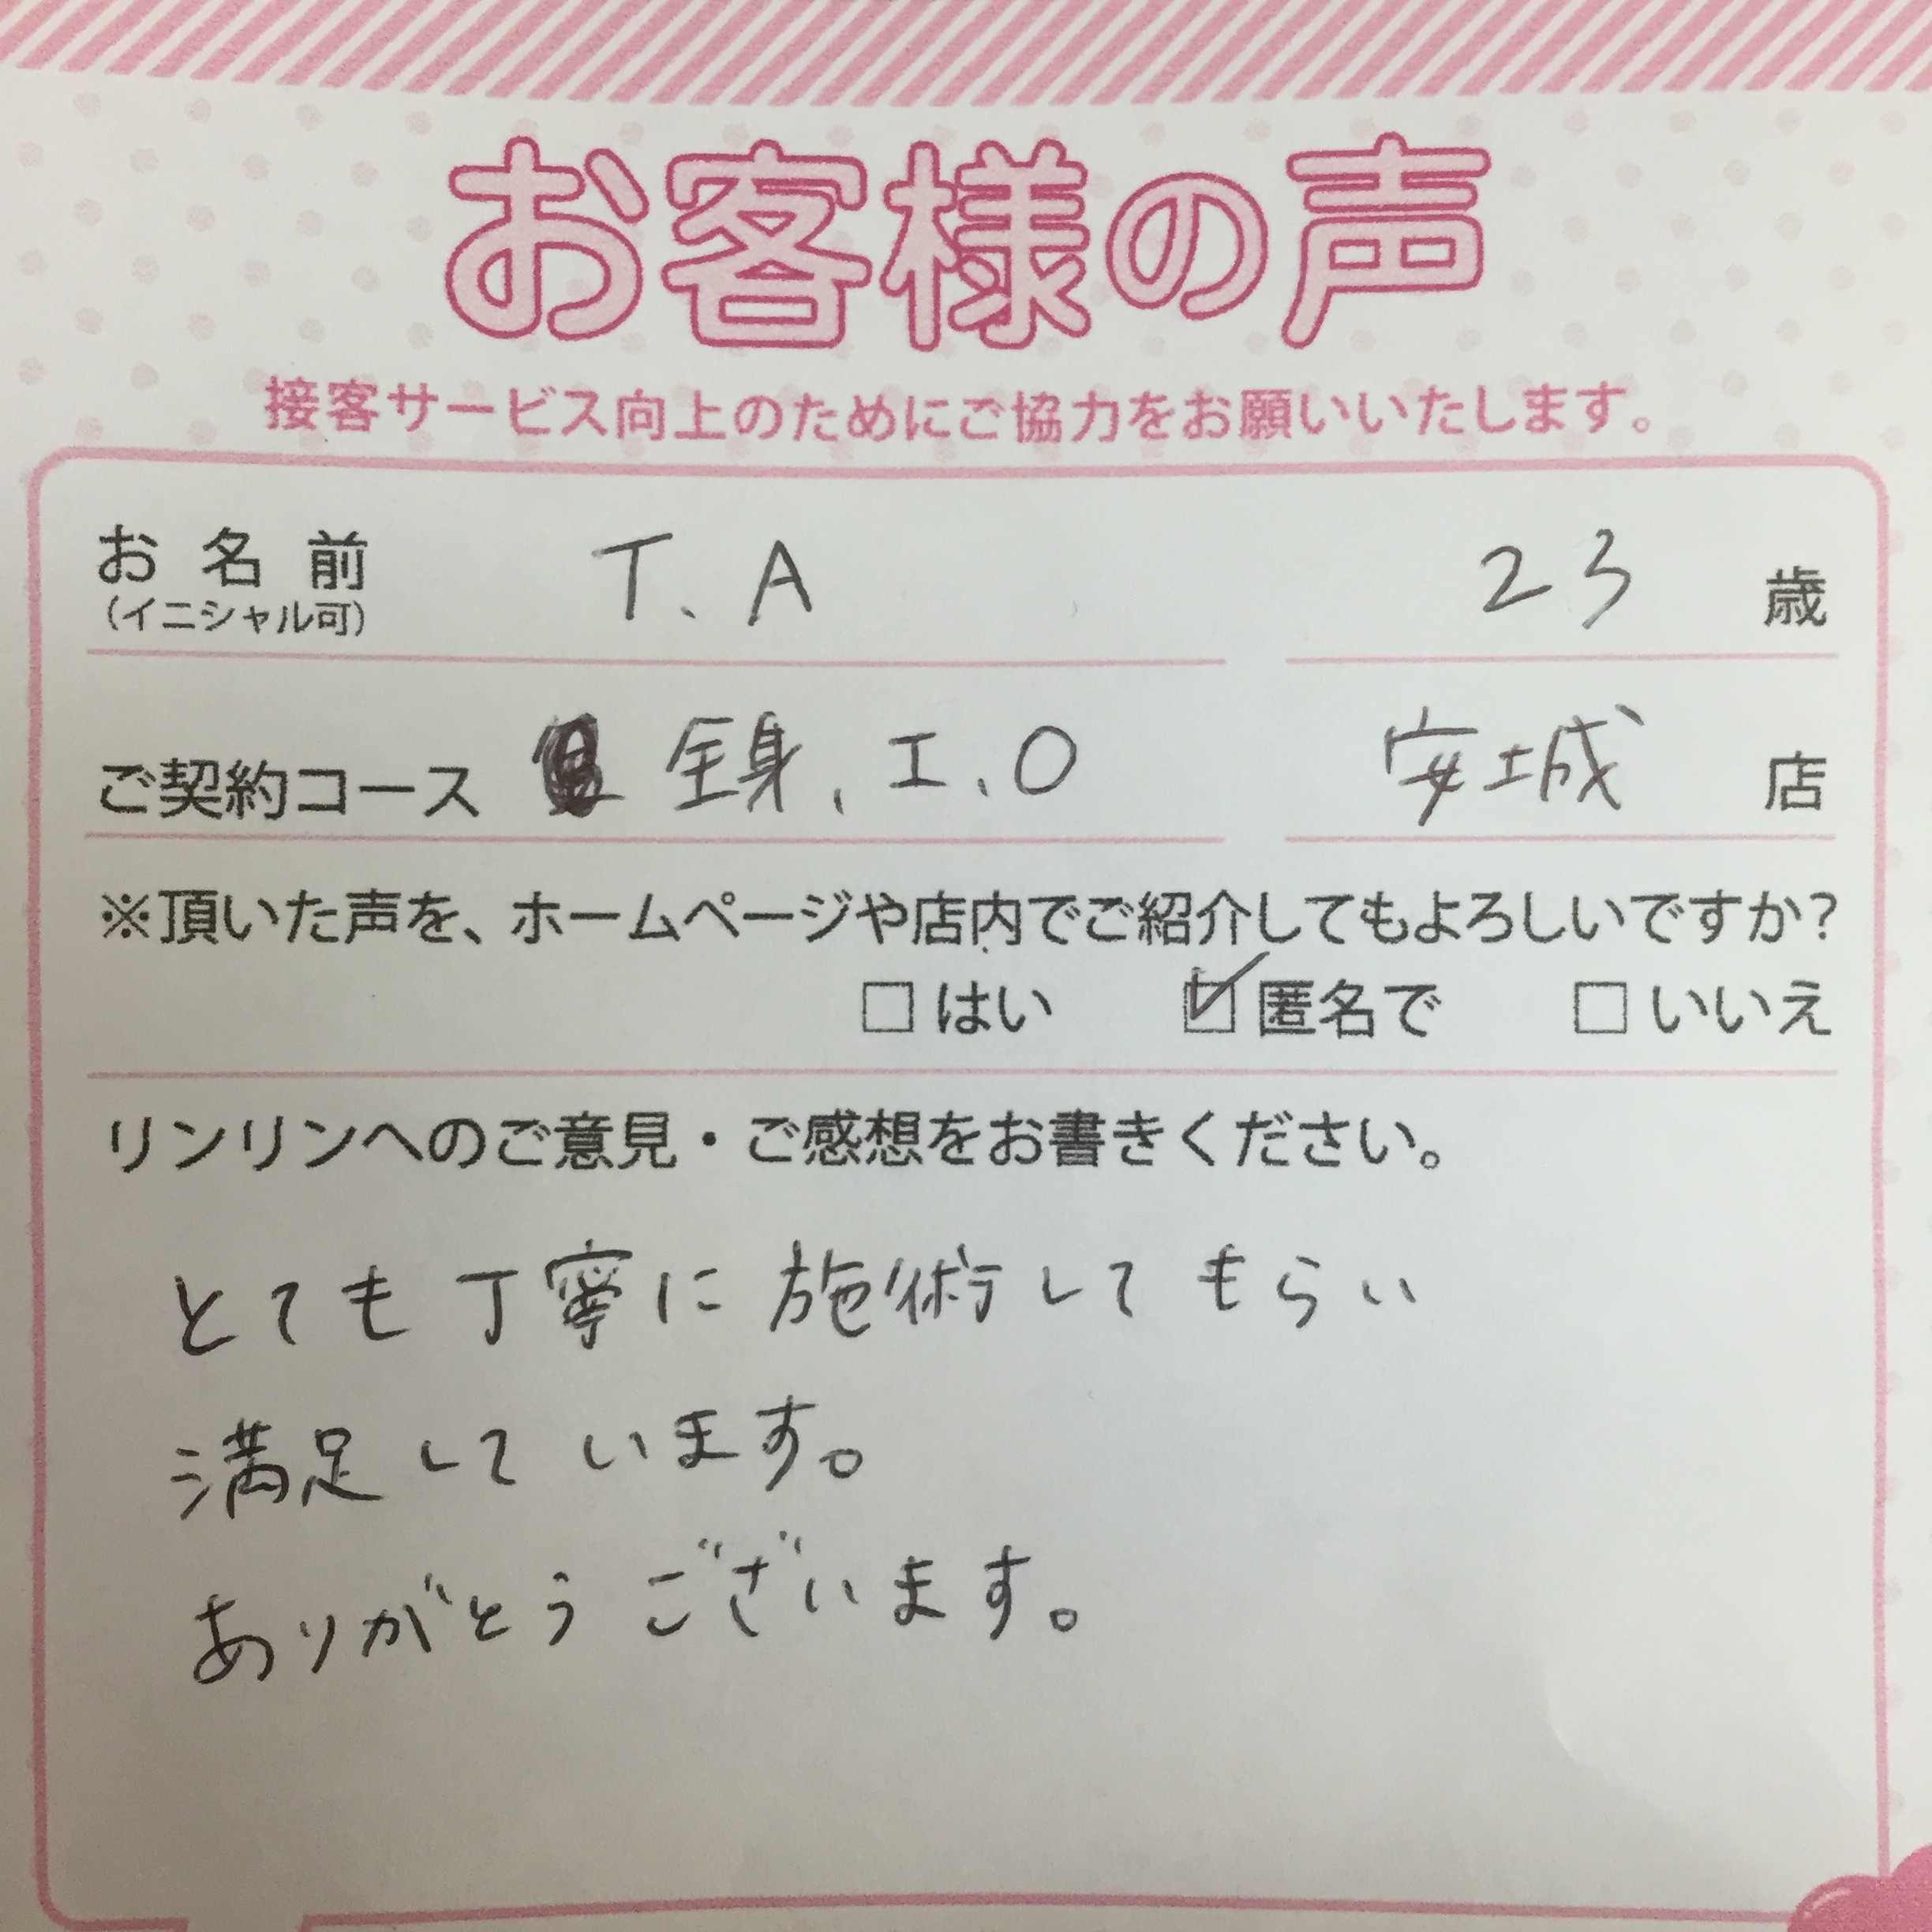 お客様の声
接客サービス向上のためにご協力をお願いいたします。
お名前 T.A 23 歳
(イニシャル可)
ご契約コース 全身、I、O 安城 店
※頂いた声を、ホームページや店内でご紹介してもよろしいですか?
□はい ☑匿名で □いいえ
リンリンへのご意見・ご感想をお書きください。
とても丁寧に施術してもらい
満足しています。
ありがとうございます。